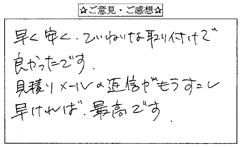 ☆ご意見・ご感想☆
早く安く、ていねいな取り付けで
良かったです。
見積りメールの返信がもうすこし
早ければ、最高です。